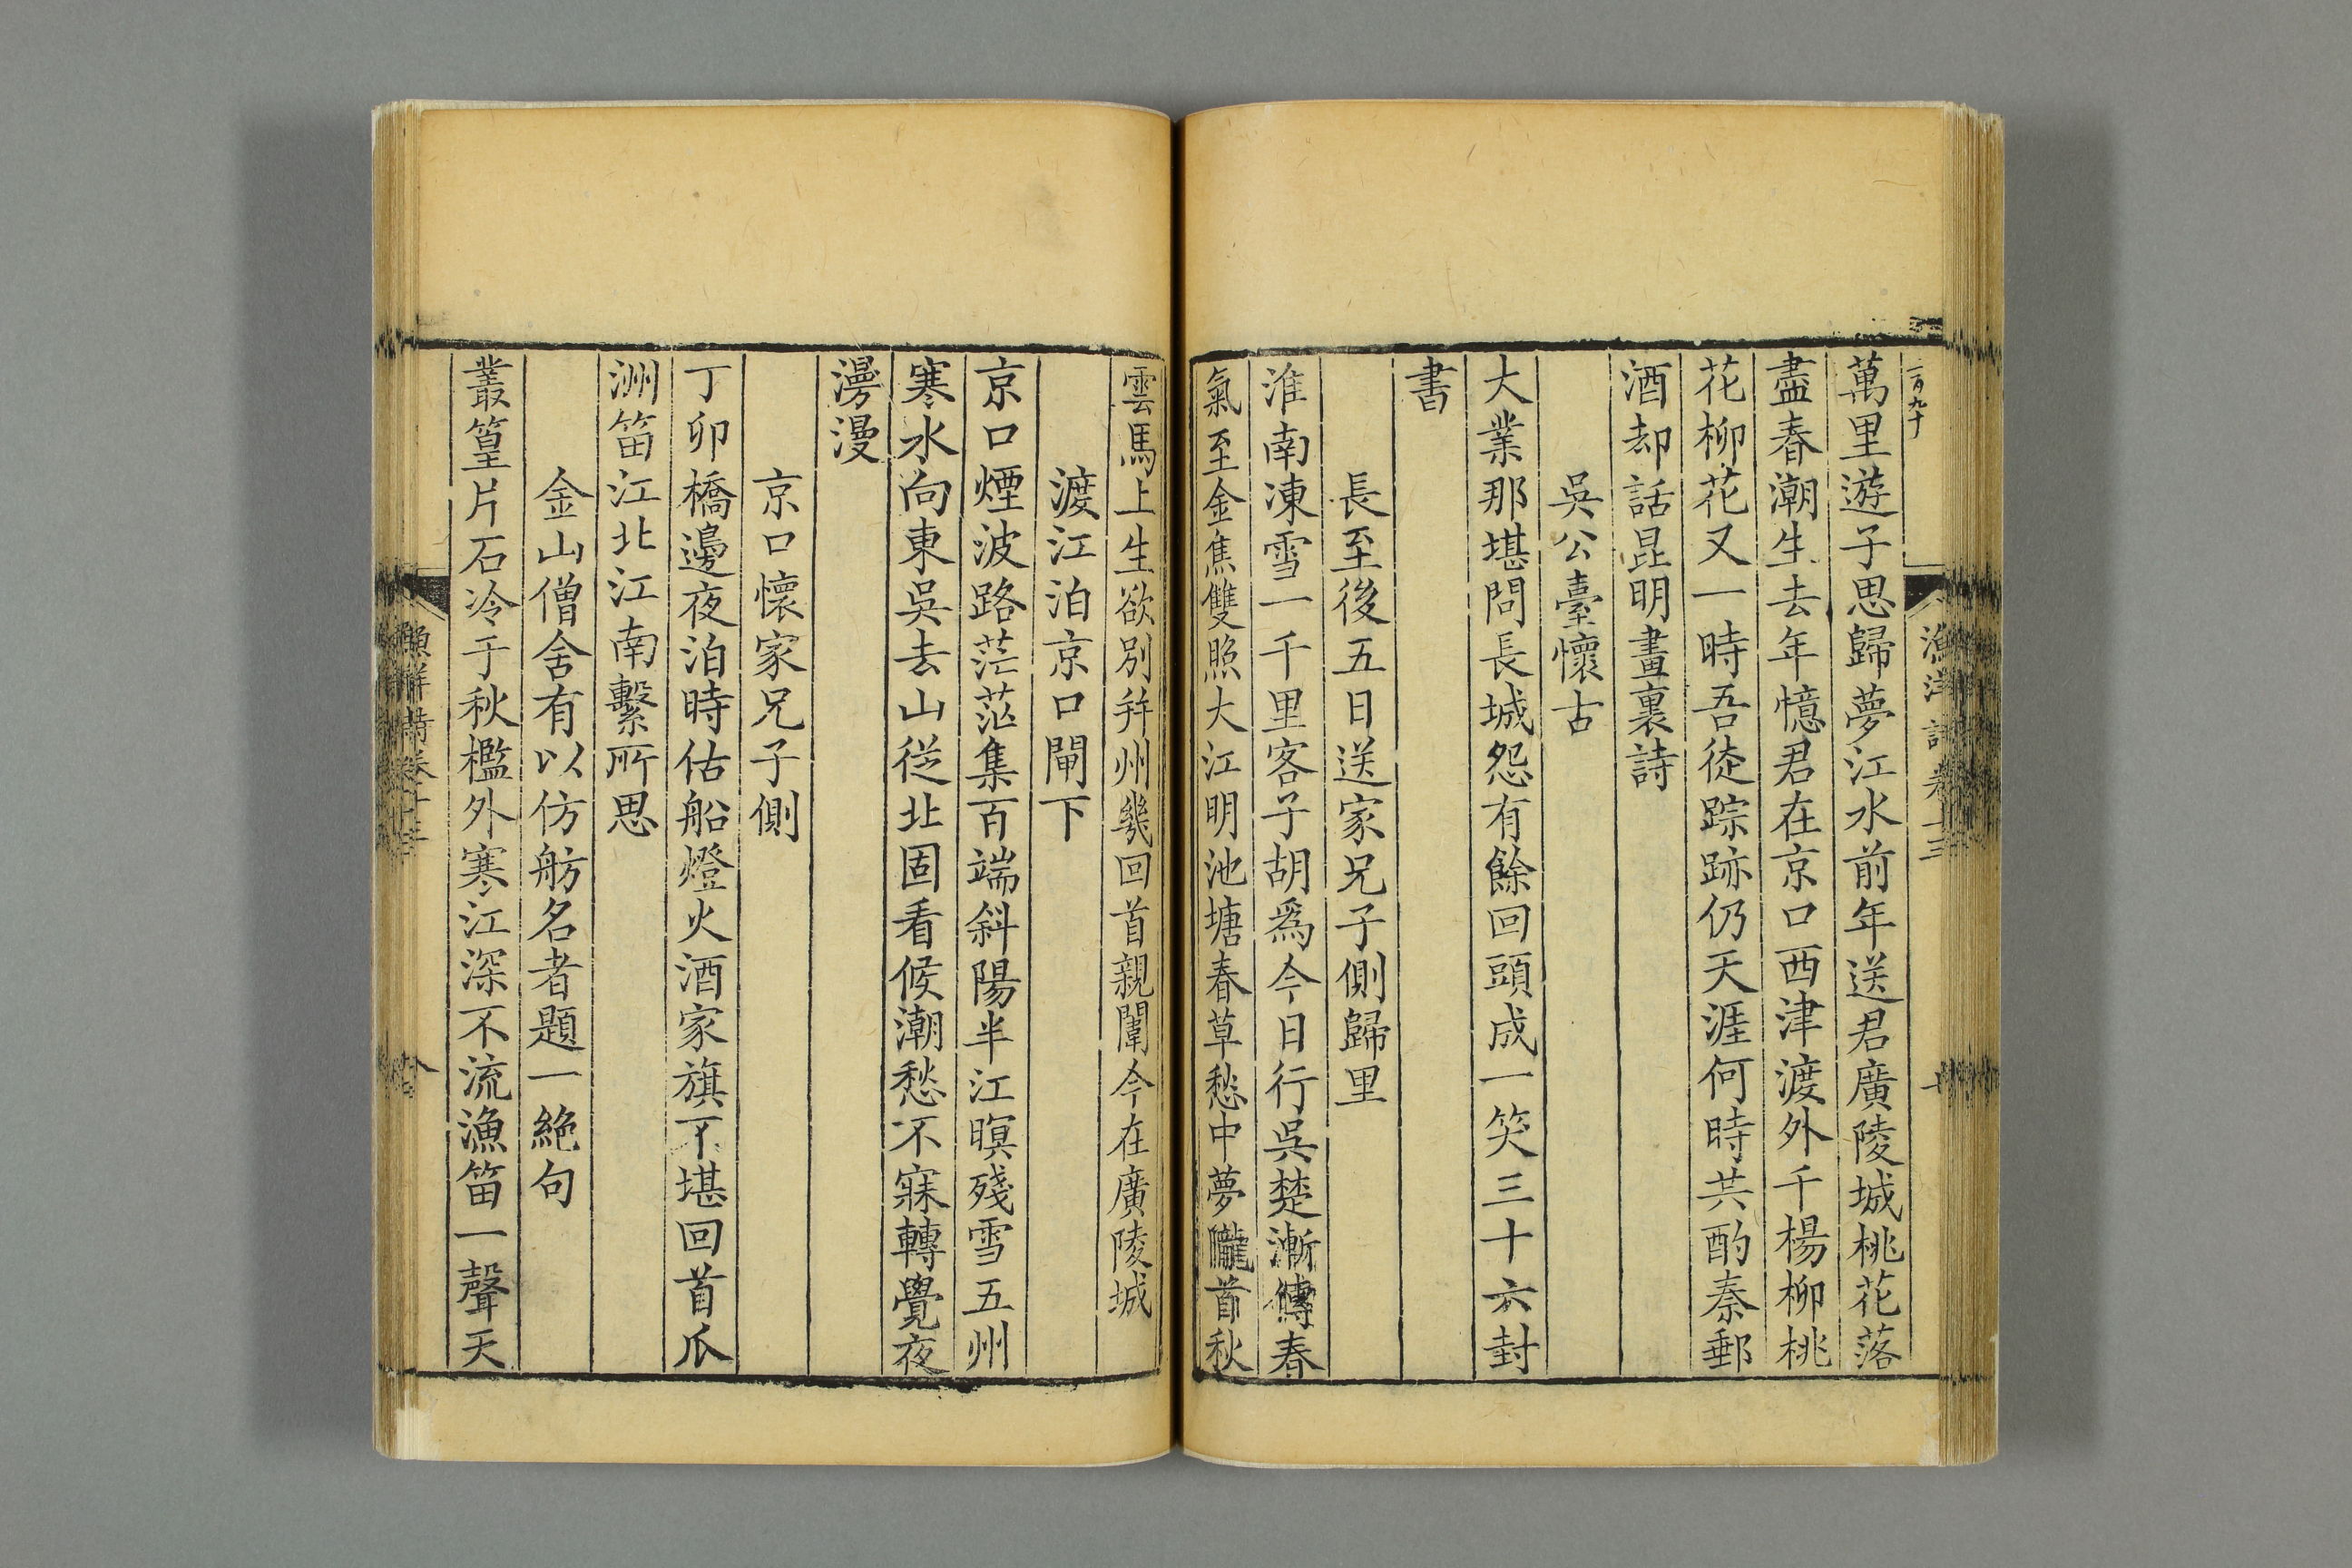 一百九十
漁洋詩卷十三
萬里遊子思歸夢江水前年送君廣陵城桃花落
盡春潮生去年憶君在京口西津渡外千楊柳桃
花柳花又一時吾徒踪跡仍天涯何時共酌秦郵
酒却話昆明畫裏詩
吳公臺懷古
大業那堪問長城怨有餘回頭成一笑三十六封
書
長至後五日送家兄子側歸里
淮南凍雪一千里客子胡爲今日行吳楚漸傳春
氣至金焦雙照大江明池塘春草愁中夢隴首秋
雲馬上生欲别并州幾回首親闈今在廣陵城
渡江泊京口閘下
京口煙波路茫茫集百端斜陽半江暝殘雪五州
寒水向東吳去山從北固看候潮愁不寐轉覺夜
漫漫
京口懷家兄子側
丁卯橋邊夜泊時估船燈火酒家旗不堪回首瓜
洲笛江北江南繫所思
金山僧舍有以仿舫名者題一絶句
叢篁片石冷于秋檻外寒江深不流漁笛一聲天
漁洋詩卷十三
八